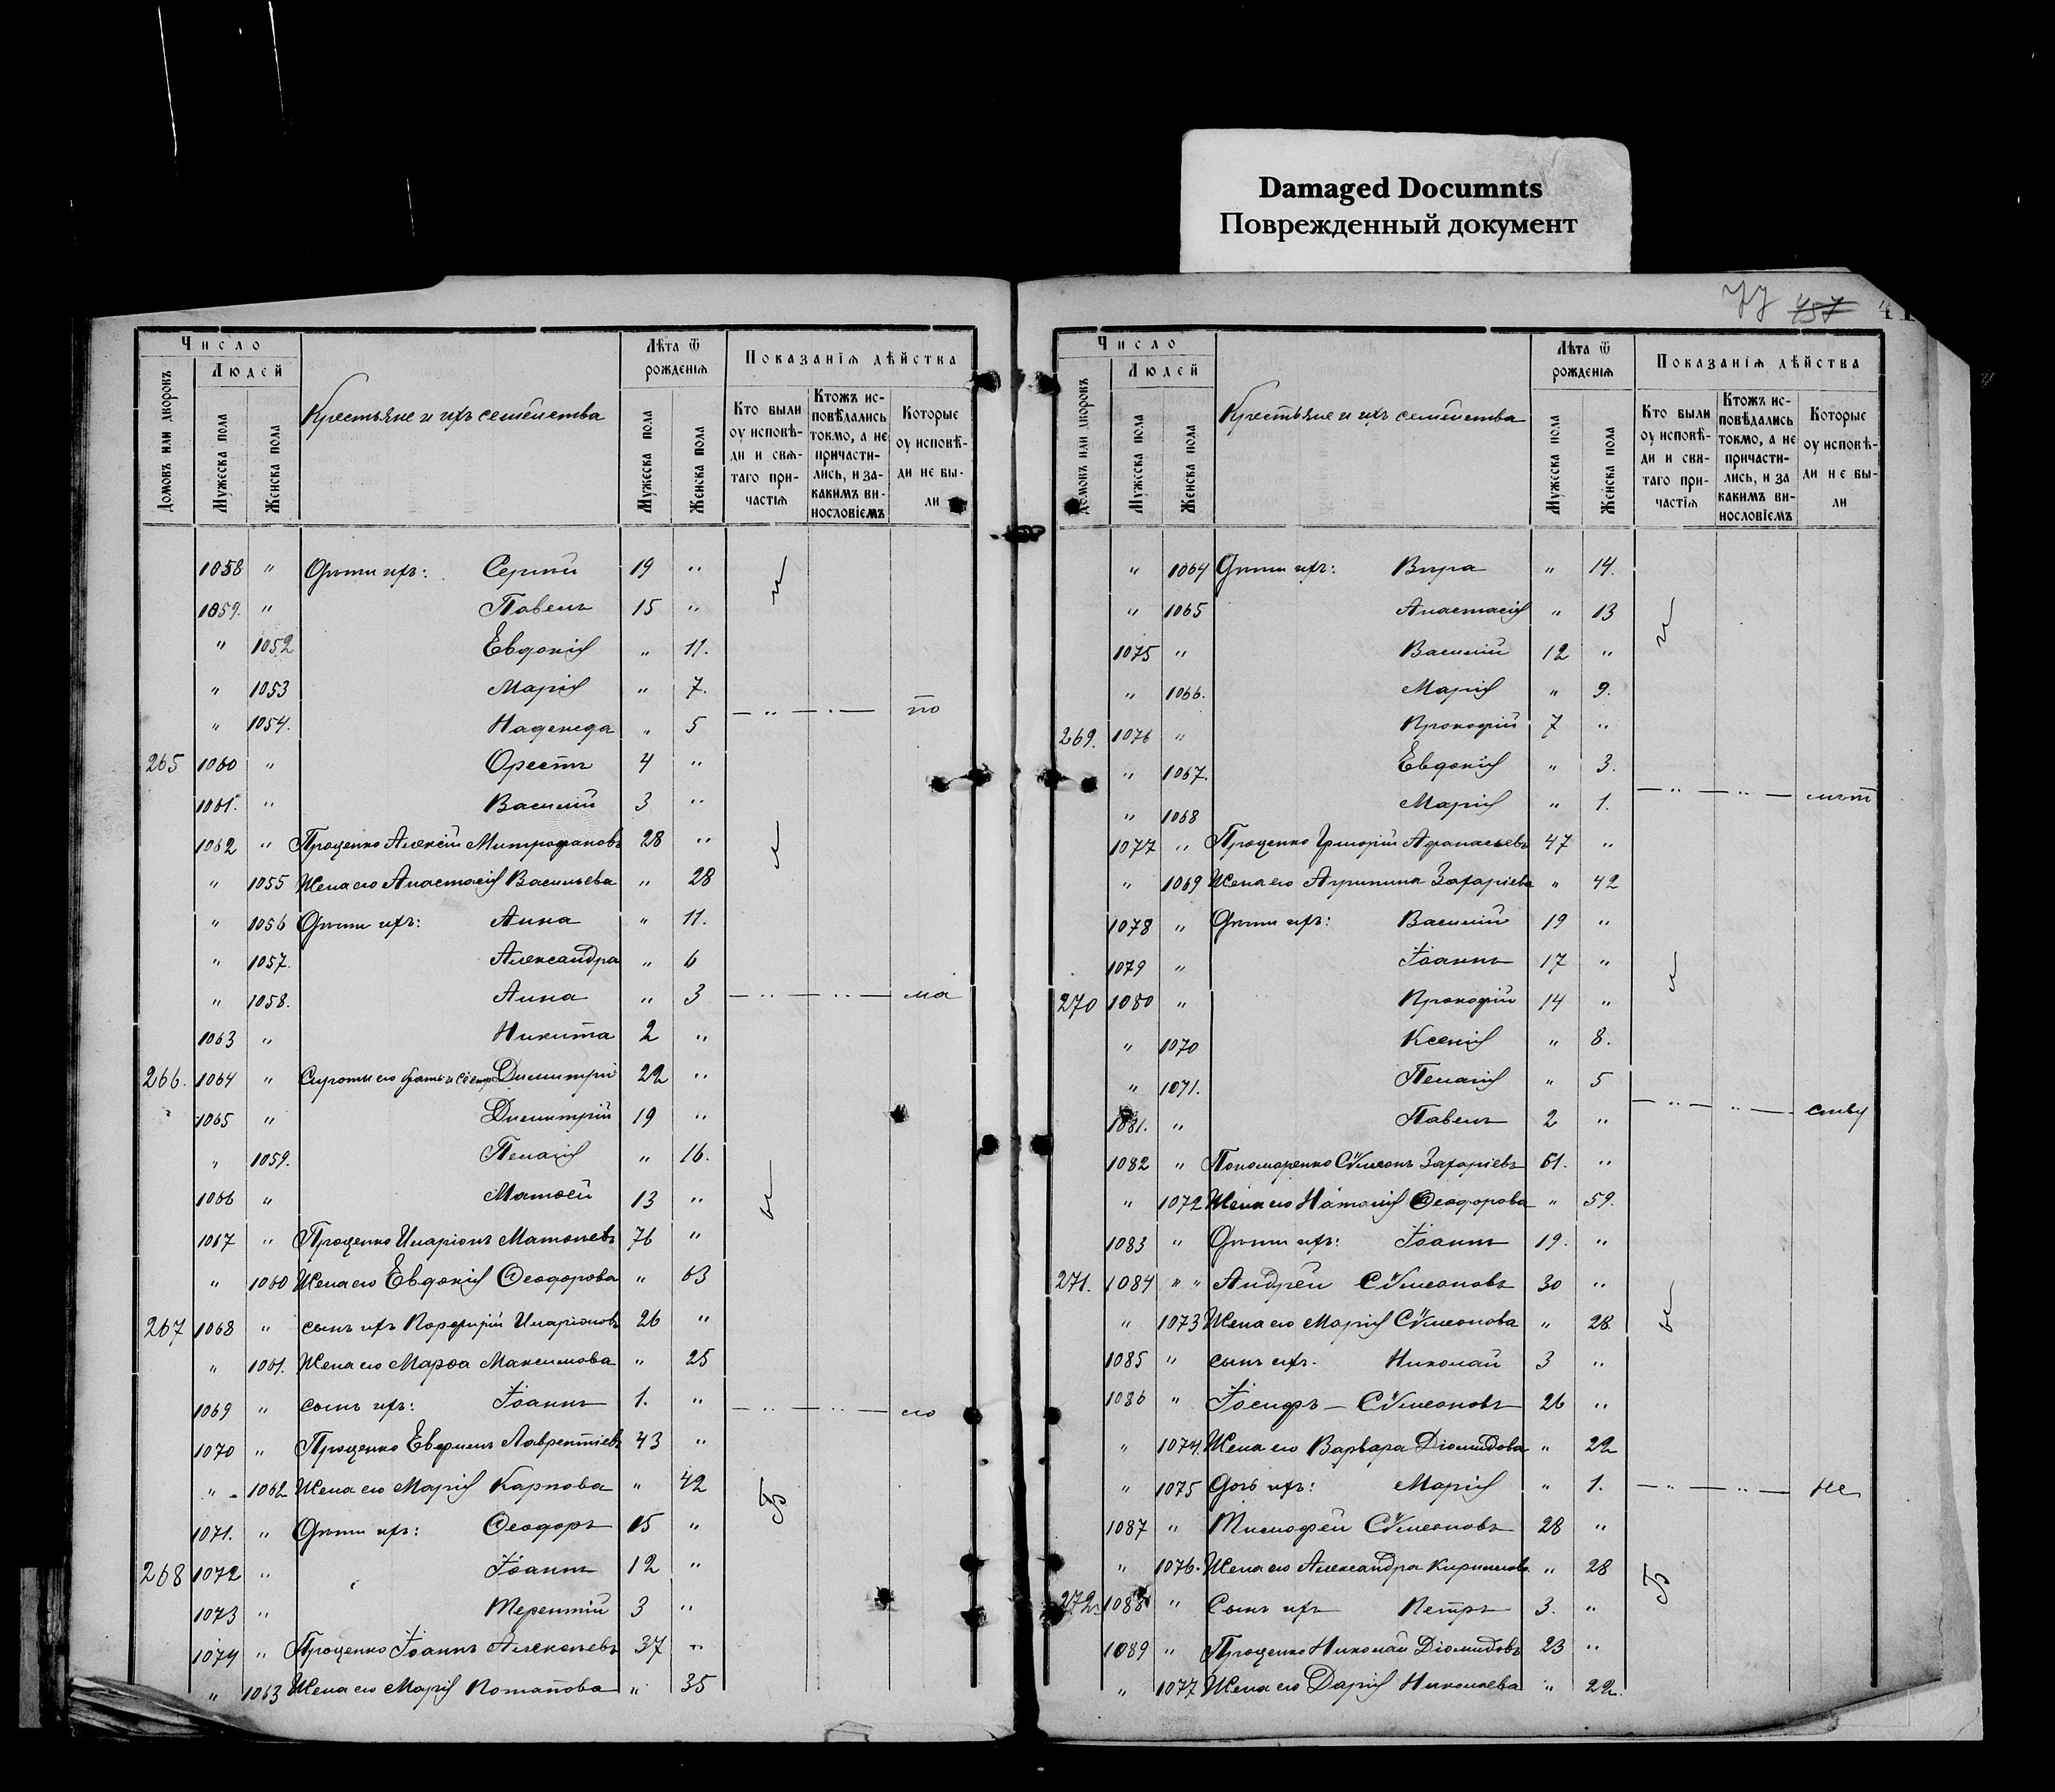 Damaged Documnts
Поврежденный документ
77 457 41
Число
Людей
Домовъ или дворовъ
Мужеска пола
Женска пола
Крестьяне и ихъ семейства
Лѣта ѿ рожденія
Мужеска пола
Женска пола
Показанія дѣйства
Кто были оу исповѣ-
ди и свя-
таго при-
частія
Ктожъ ис-
повѣдались
токмо, а не
причасти-
лись, и за-
какимъ ви-
нословіемъ
Которые
оу исповѣ-
ди не бы-
ли
1058 " Дѣти ихъ: Сергий 19 "
1059. " Павелъ 15 "
" 1052 Евдокія " 11.
" 1053 Марія " 7.
" 1054. Надежда " 5 — " — " — то
265 1060 " Орестъ 4 "
1061. " Василій 3 "
1062 " Проценко Алексій Митрофановъ 28 "
" 1055 Жена его Анастасія Васильева " 28
" 1056 Дѣти ихъ: Анна " 11.
" 1057. Александра " 6
" 1058. Анна " 3 — " — " — ма
1063 " Никита 2 "
266. 1064 " Сироты его братъ и сестр Димитрій 22 "
1065 " Димитрій 19 "
" 1059. Пелагія " 16.
1066 " Матѳей 13 "
1067 " Проценко Иларіонъ Матѳіевъ 76 "
" 1060 Жена его Евдокія Ѳеодорова " 63
267 1068 " сынъ ихъ Порфирій Иларіоновъ 26 "
" 1061. Жена его Марѳа Максимова " 25
1069 " сынъ ихъ: Іоаннъ 1. " — " — " — его
1070 " Проценко Евфимъ Лаврентіевъ 43 "
" 1062 Жена его Марія Карпова " 42
1071. " Дѣти ихъ: Ѳеодоръ 15 "
268 1072 " Іоаннъ 12 "
1073 " Терентій 3 "
1074 " Проценко Іоаннъ Алексѣевъ 37 "
" 1063 Жена его Марія Потапова " 35
Число
Людей
Домовъ или дворовъ
Мужеска пола
Женска пола
Крестьяне и ихъ семейства
Лѣта ѿ рожденія
Мужеска пола
Женска пола
Показанія дѣйства
Кто были
оу исповѣ-
ди и свя-
таго при-
частія
Ктожъ ис-
повѣдались
токмо, а не
причасти-
лись, и за
какимъ ви-
нословіемъ
Которые
оу исповѣ-
ди не бы-
ли
" 1064 Дѣти ихъ: Вѣра " 14.
" 1065 Анастасія " 13
1075 " Василій 12 "
" 1066. Марія " 9.
269. 1076 " Прокофій 7 "
" 1067. Евдокія " 3.
" 1068 Марія " 1. — " — " —
1077 " Проценко Григорій Афанасьевъ 47 "
" 1069 Жена его Агрипина Захаріева " 42
1078 " Дѣти ихъ: Василій 19 "
1079 " Іоаннъ 17 "
270 1080 " Прокофій 14 "
" 1070 Ксенія " 8.
" 1071. Пелагія " 5
1081. " Павелъ 2 " — " — " — ству
1082 " Пономаренко Сѵмеонъ Захаріевъ 61. "
" 1072 Жена его Наталія Ѳеодорова " 59.
1083 " Дѣти ихъ: Іоаннъ 19. "
271. 1084 " " Андрей Сѵмеоновъ 30 "
" 1073 Жена его Марія Сѵмеонова " 28
1085 " сынъ ихъ. Николай 3 "
1086 " Іосифъ — Сѵмеоновъ 26 "
" 1074. Жена его Варвара Діомидова " 22
" 1075 Дочь ихъ: Марія " 1. — " — " — не
1087 " Тимофей Сѵмеоновъ 28 "
" 1076. Жена его Александра Кириллова " 28
272. 1088 " Сынъ ихъ Петръ 3. "
1089 " Проценко Николай Діомидовъ 23 "
" 1077 Жена его Дарія Николаева " 22.